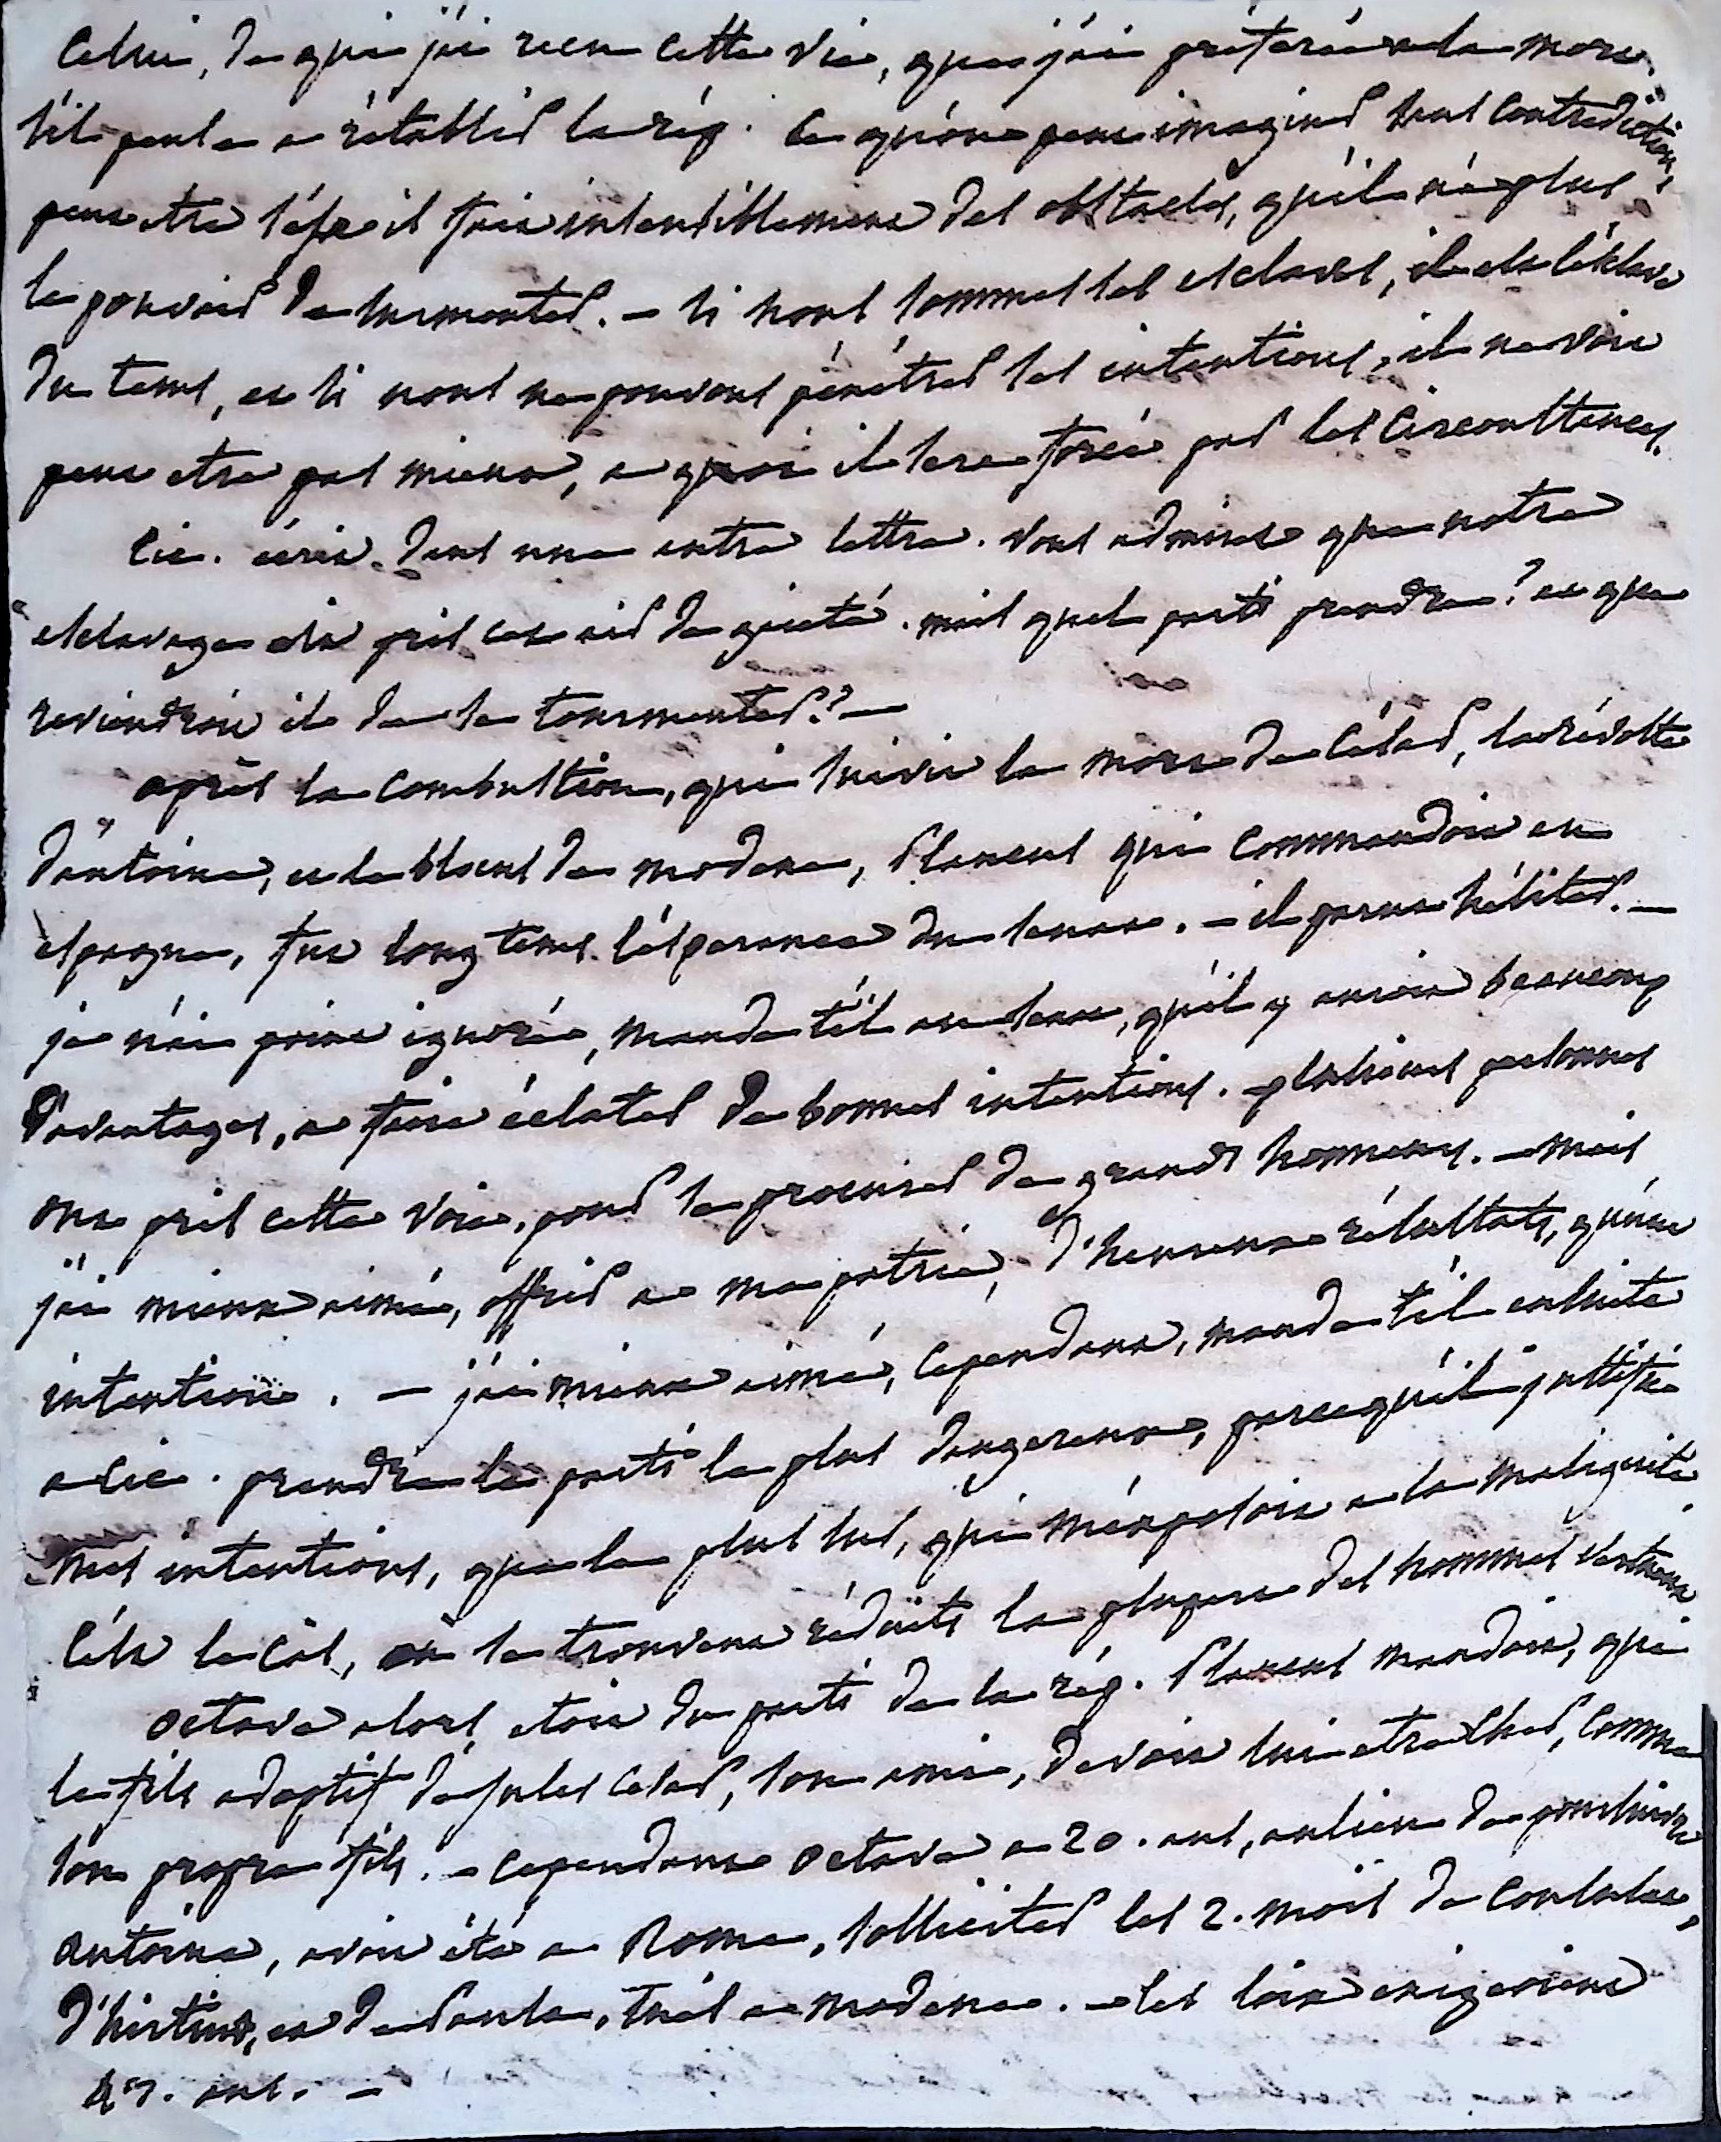 Celui, de qui j'ai recu cette vie, que j'ai préferée a la mort.
s'il parle a rétablir la rép. ce qu'on peut imaginer sans contradiction,
peut etre s'est il fait insensiblement des obstacles, qu'il n'a plus
le pouvoir de surmonter. - si nous sommes ses esclaves, il est l'esclave
du tems, et si nous ne pouvons pénétrer ses intentions, il ne voit
peut etre pas mieux, a quoi il sera forcé par les circonstances.
Cic. écrit dans une autre lettre. vous admirez que notre
esclavage ait pris cet air de gieté. mais quel parti prendre? et que
reviendroit il de se tourmenter? -
après la combustion, qui suivit la mort de César, la révolte
d'antoine, et le blocus de modene, Plancus qui commandoit en
espagne, fut longtems l'esperance du senat. - il parut hésiter. -
je n'ai point ignoré, mande t'il au senat, qu'il y auroit beaucoup
d'avantages, a faire éclater de bonnes intentions. plusieurs personnes
ont pris cette voie, pour se procurer de grands honneurs. - mais
j'ai mieux aimé, offrir a ma patrie, d'heureux résultats, qu'une
intention. - j'ai mieux aimé, cependant, mande t'il ensuite
a Cic. prendre le parti le plus dangereux, parcequ'il justifie
mes intentions, que le plus sur, qui m'expósoit a la malignité.
C'est le cas, où se trouvent réduits la plupart des hommes vertueux
octave alors, etoit du parti de la rép. Plancus mandoit, que
le fils adoptif de jules Cesar, son ami, devoit lui etre cher, comme
son propre fils. - cependant octave a 20. ans, au lieu de poursuivre
antoine, avoit été a Rome, solliciter les 2. mois de Consulat,
d'hirtius, et de Pansa, tués a modene. - les loix exigeoient
43. ans. -